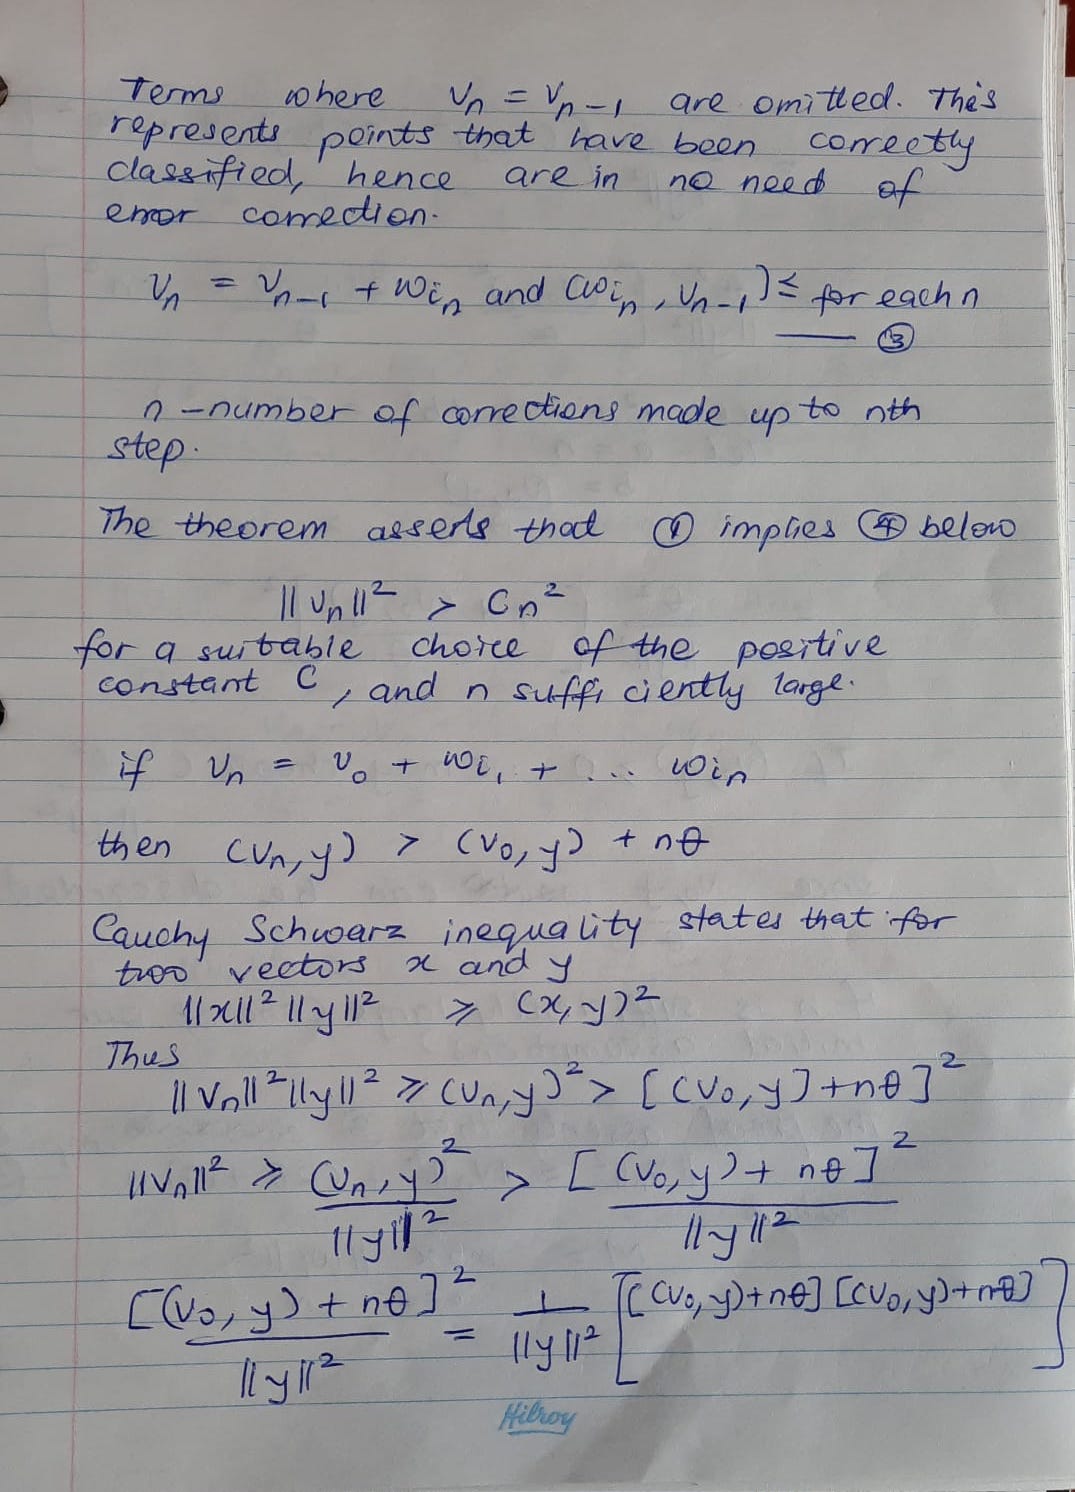 Terms where vₙ = vₙ₋₁ are omitted. This
represents points that have been correctly
classified, hence are in no need of
error correction.
vₙ = vₙ₋₁ + wᵢₙ and (wᵢₙ, vₙ₋₁) ≤ for each n
—— ③
n - number of corrections made up to nth
step.
The theorem asserts that ① implies ④ below
||vₙ||² > Cn²
for a suitable choice of the positive
constant C, and n sufficiently large.
if vₙ = v₀ + wᵢ₁ + ... wᵢₙ
then (vₙ, y) > (v₀, y) + nθ
Cauchy Schwarz inequality states that for
two vectors x and y
||x||² ||y||² ⩾ (x, y)²
Thus
||vₙ||² ||y||² ⩾ (vₙ, y)² > [(v₀, y) + nθ]²
||vₙ||² ⩾ (vₙ, y)² / ||y||² > [(v₀, y) + nθ]² / ||y||²
[(v₀, y) + nθ]² / ||y||² = 1 / ||y||² [[(v₀, y) + nθ] [(v₀, y) + nθ]]
Hilroy